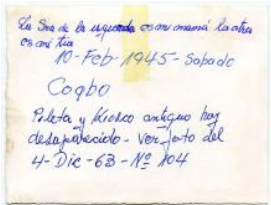 La Sra de la izquierda es mi mamá la otra
es mi tia
10-Feb-1945-Sabado
Cogbo
Pileta y Kiosco antiguo hoy
desaparecido - Ver foto del
4-Dic-63-Nº 104